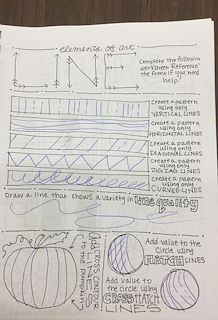 elements of art
LINE
Complete the following
worksheet. Reference
the front if you need
help!
Create a pattern
using only
VERTICAL LINES
Create a pattern
using only
HORIZONTAL LINES
Create a pattern
using only
DIAGONAL LINES
Create a pattern
using only
ZIGZAG LINES
Create a pattern
using only
CURVED LINES
Draw a line that shows a variety in line quality
Add CROSS CONTOUR
to the pumpkin
Add value to the
circle using
HATCH LINES
Add value to the
circle using
CROSS HATCH
LINES